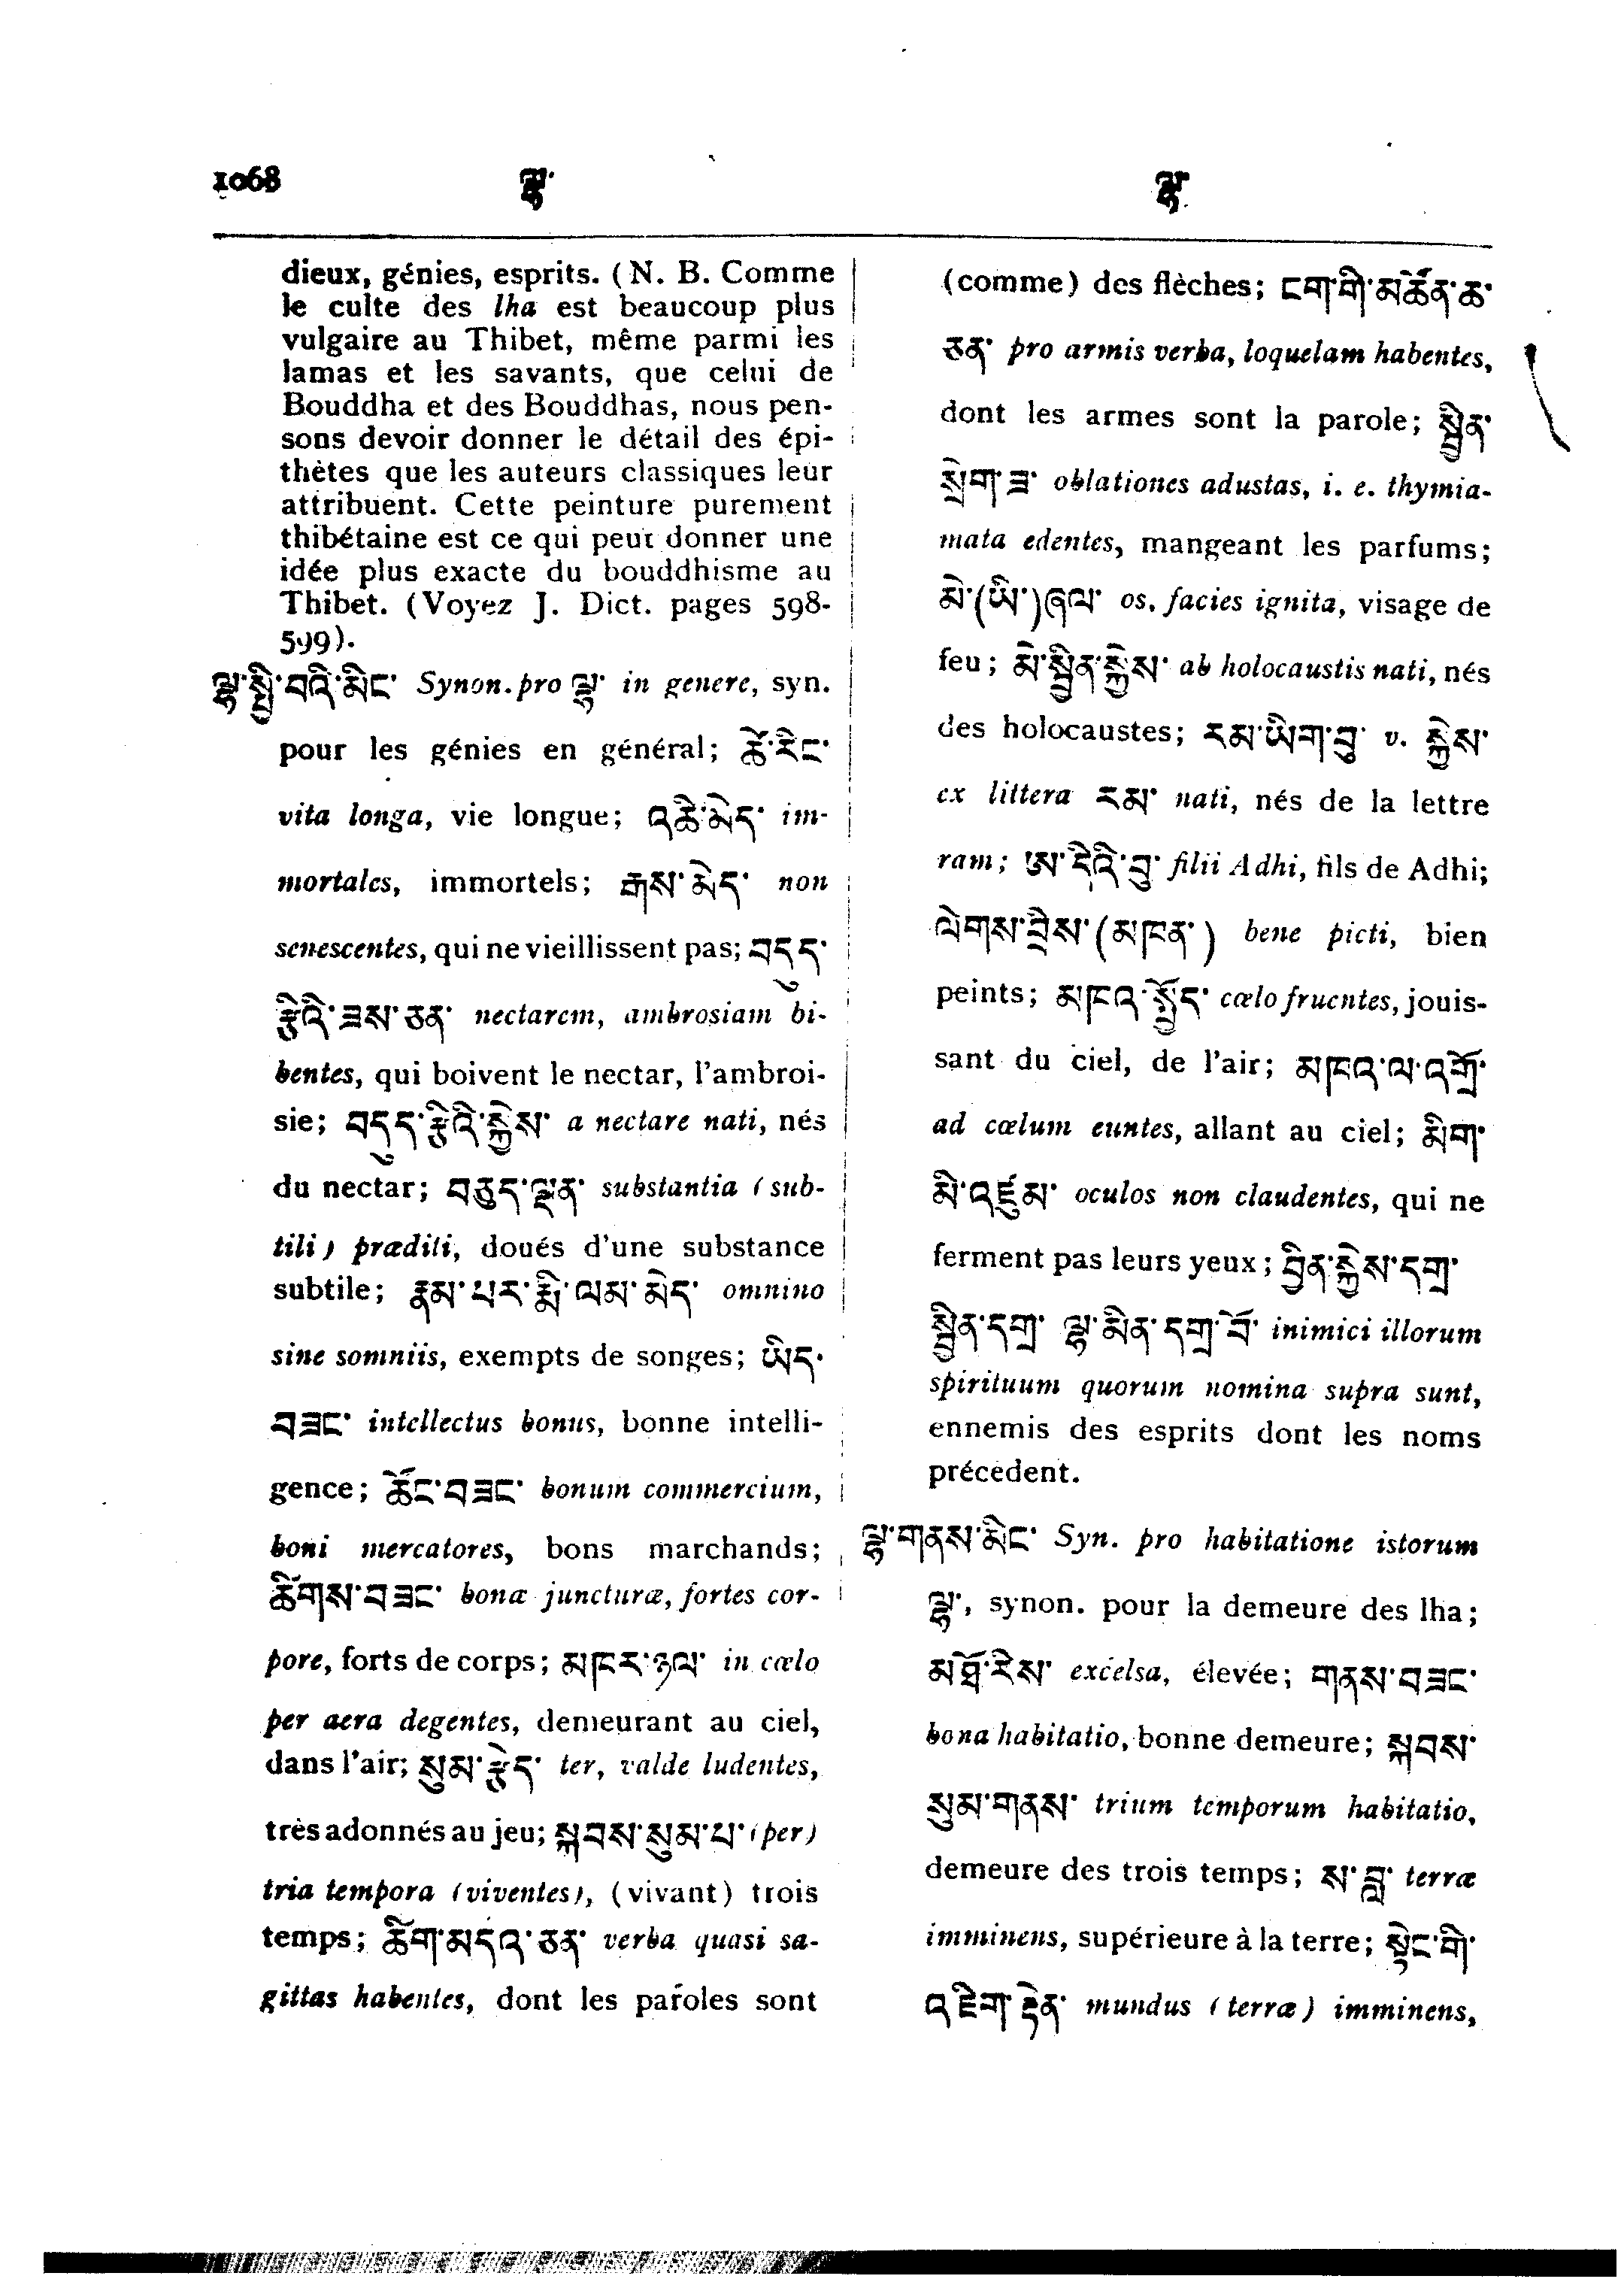 1068 ལྷ་ ལྷ་
dieux, génies, esprits. (N. B. Comme
le culte des lha est beaucoup plus
vulgaire au Thibet, même parmi les
lamas et les savants, que celui de
Bouddha et des Bouddhas, nous pen-
sons devoir donner le détail des épi-
thètes que les auteurs classiques leur
attribuent. Cette peinture purement
thibétaine est ce qui peut donner une
idée plus exacte du bouddhisme au
Thibet. (Voyez J. Dict. pages 598-
599).
ལྷ་སྤྱི་བའི་མིང་ Synon. pro ལྷ་ in genere, syn.
pour les génies en général; ཚེ་རིང་
vita longa, vie longue; འཆི་མེད་ im-
mortales, immortels; རྒས་མེད་ non
senescentes, qui ne vieillissent pas; བདུད་
རྩིའི་ཟས་ཅན་ nectarem, ambrosiam bi-
bentes, qui boivent le nectar, l'ambroi-
sie; བདུད་རྩིའི་སྐྱེས་ a nectare nati, nés
du nectar; བཅུད་ལྡན་ substantia (sub-
tili) præditi, doués d'une substance
subtile; རྣམ་པར་རྨི་ལམ་མེད་ omnino
sine somniis, exempts de songes; ཡིད་
བཟང་ intellectus bonus, bonne intelli-
gence; ཚོང་བཟང་ bonum commercium,
boni mercatores, bons marchands;
ཚིགས་བཟང་ bonæ juncturæ, fortes cor-
pore, forts de corps; མཁར་ཉལ་ in cœlo
per aera degentes, demeurant au ciel,
dans l'air; སུམ་རྩེད་ ter, valde ludentes,
très adonnés au jeu; སྐབས་སུམ་པ་ (per)
tria tempora (viventes), (vivant) trois
temps; ཚིག་མདའ་ཅན་ verba quasi sa-
gittas habentes, dont les paroles sont
(comme) des flèches; ངག་གི་མཚོན་ཆ་
ཅན་ pro armis verba, loquelam habentes,
dont les armes sont la parole; སྦྱིན་
སྲེག་ཟ་ oblationes adustas, i. e. thymia-
mata edentes, mangeant les parfums;
མེ་(ཡི་)ཞལ་ os, facies ignita, visage de
feu; མེ་སྦྱིན་སྐྱེས་ ab holocaustis nati, nés
des holocaustes; རམ་ཡིག་བུ་ v. སྐྱེས་
ex littera རམ་ nati, nés de la lettre
ram; ཨ་དྷིའི་བུ་ filii Adhi, fils de Adhi;
ལེགས་བྲིས་(མཁན་) bene picti, bien
peints; མཁའ་སྤྱོད་ cœlo fruentes, jouis-
sant du ciel, de l'air; མཁའ་ལ་འགྲོ་
ad cœlum euntes, allant au ciel; མིག་
མི་འཛུམ་ oculos non claudentes, qui ne
ferment pas leurs yeux; བྱིན་སྐྱེས་དགྲ་
སྦྱིན་དགྲ་ ལྷ་མིན་དགྲ་བོ་ inimici illorum
spirituum quorum nomina supra sunt,
ennemis des esprits dont les noms
précèdent.
ལྷ་གནས་མིང་ Syn. pro habitatione istorum
ལྷ་, synon. pour la demeure des lha;
མཐོ་རིས་ excelsa, élevée; གནས་བཟང་
bona habitatio, bonne demeure; སྐབས་
སུམ་གནས་ trium temporum habitatio,
demeure des trois temps; ས་བླ་ terræ
imminens, supérieure à la terre; སྟེང་གི་
འཇིག་རྟེན་ mundus (terræ) imminens,